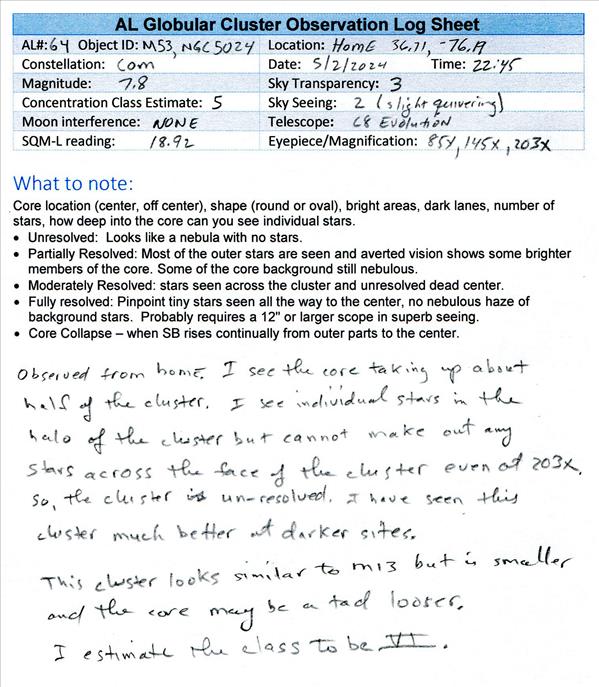 AL Globular Cluster Observation Log Sheet
AL#: 64 Object ID: M53, NGC5024 Location: Home 36.71, -76.19
Constellation: Com Date: 5/2/2024 Time: 22:45
Magnitude: 7.8 Sky Transparency: 3
Concentration Class Estimate: 5 Sky Seeing: 2 (slight quivering)
Moon interference: NONE Telescope: C8 Evolution
SQM-L reading: 18.92 Eyepiece/Magnification: 85X, 145X, 203X
What to note:
Core location (center, off center), shape (round or oval), bright areas, dark lanes, number of
stars, how deep into the core can you see individual stars.
• Unresolved: Looks like a nebula with no stars.
• Partially Resolved: Most of the outer stars are seen and averted vision shows some brighter
members of the core. Some of the core background still nebulous.
• Moderately Resolved: stars seen across the cluster and unresolved dead center.
• Fully resolved: Pinpoint tiny stars seen all the way to the center, no nebulous haze of
background stars. Probably requires a 12" or larger scope in superb seeing.
• Core Collapse – when SB rises continually from outer parts to the center.
Observed from home. I see the core taking up about
half of the cluster. I see individual stars in the
halo of the cluster but cannot make out any
stars across the face of the cluster even at 203X.
So, the cluster is un-resolved. I have seen this
cluster much better at darker sites.
This cluster looks similar to M13 but is smaller
and the core may be a tad looser.
I estimate the class to be VI.